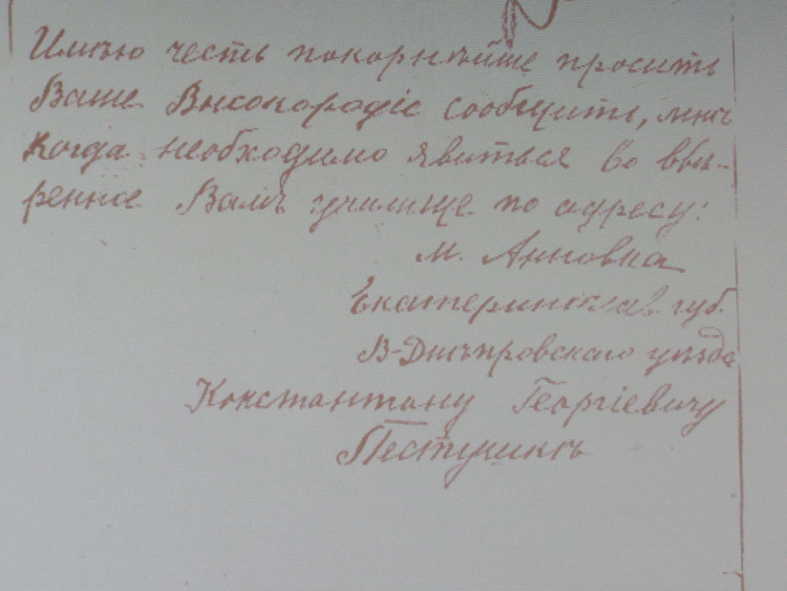 Имѣю честь покорнѣйше просить
Ваше Высокородіе сообщить, мнѣ
когда необходимо явиться во ввѣ-
ренное Вамъ училище по адресу:
м. Анновка
Екатеринослав. губ.
В-Днѣпровскаго уѣзда
Константину Георгіевичу
Пестушко